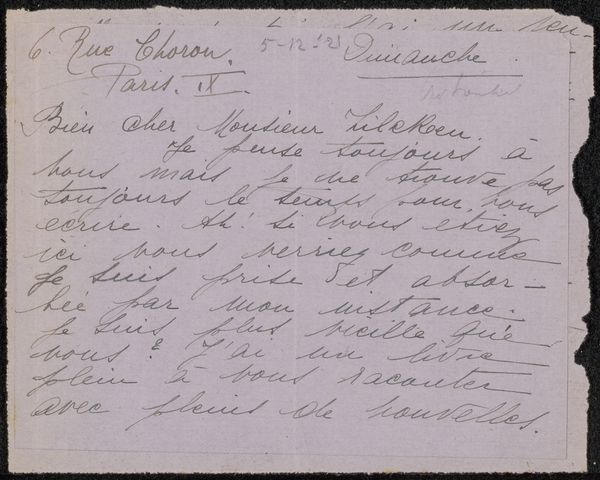 un
6. Rue Choron. 5-12-'21 Dimanche
Paris. IX.
Bien cher Monsieur Zilcken.
Je pense toujours à
vous mais je ne trouve pas
toujours le temps pour vous
ecrire. Ah! si vous etiez
ici vous verriez comme
Je suis prise et absor-
bée par mon instance.
Je suis plus vieille que
vous? J'ai un livre
plein à vous raconter
avec pleins de nouvelles.